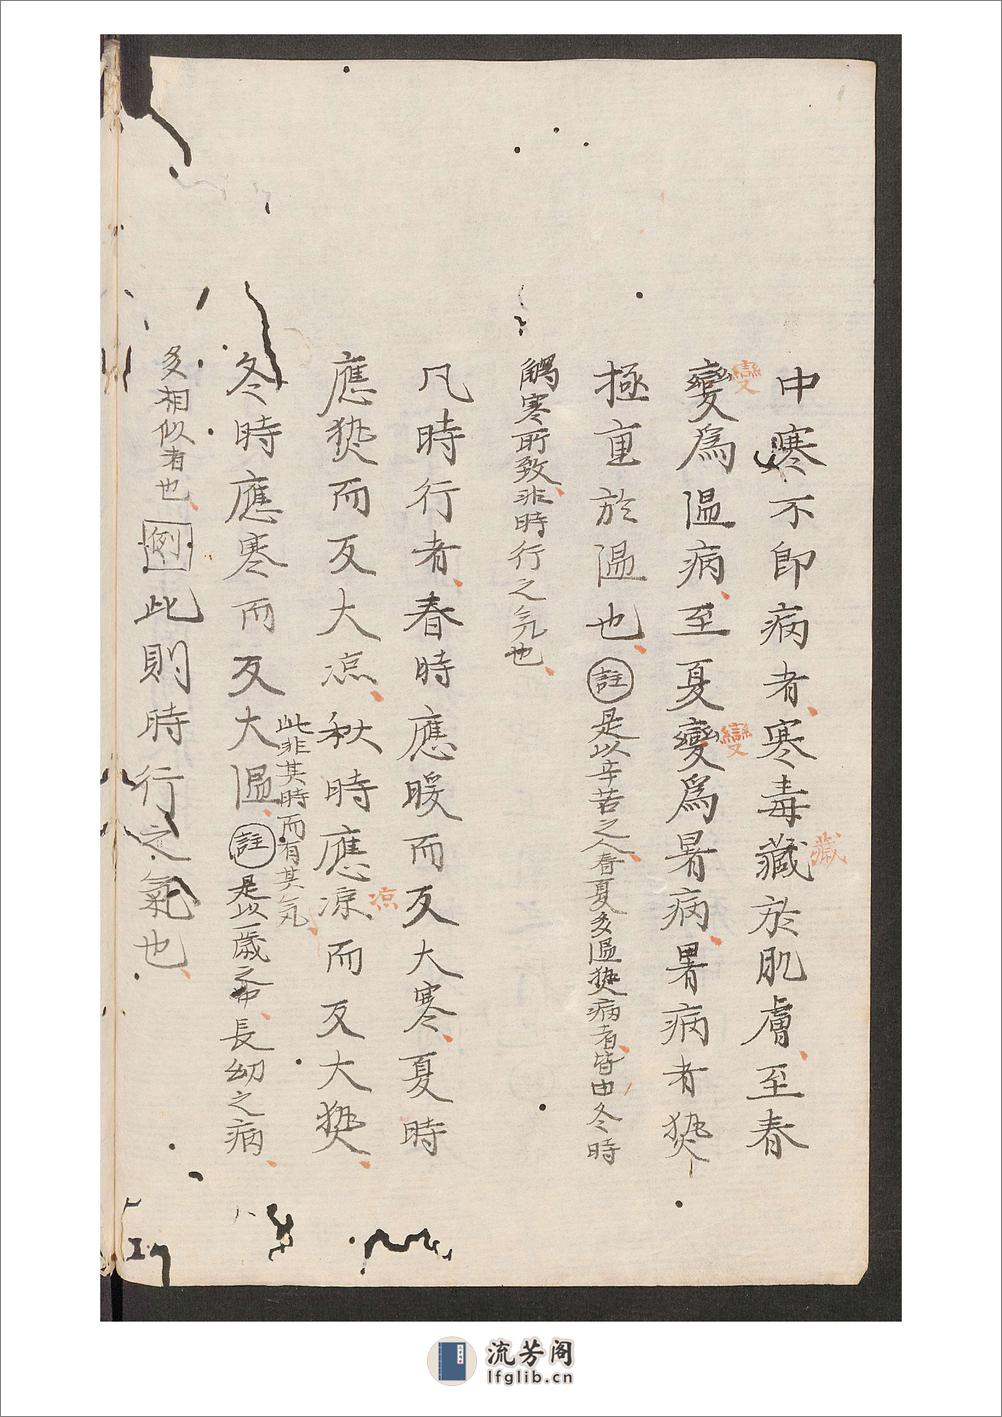 中寒不即病者、寒毒藏於肌膚、至春
藏
變爲温病、至夏變爲暑病、暑病者熱
變
變
極重於温也、註是以辛苦之人、春夏多温熱病者、皆由冬時
觸寒所致、非時行之気也、
凡時行者、春時應暖而反大寒、夏時
應熱而反大凉、秋時應凉而反大熱、
凉
此非其時而有其気、
冬時應寒而反大温、註是以一歳之中、長幼之病、
多相似者也、例此則時行之氣也、
流芳阁
lfglib.cn